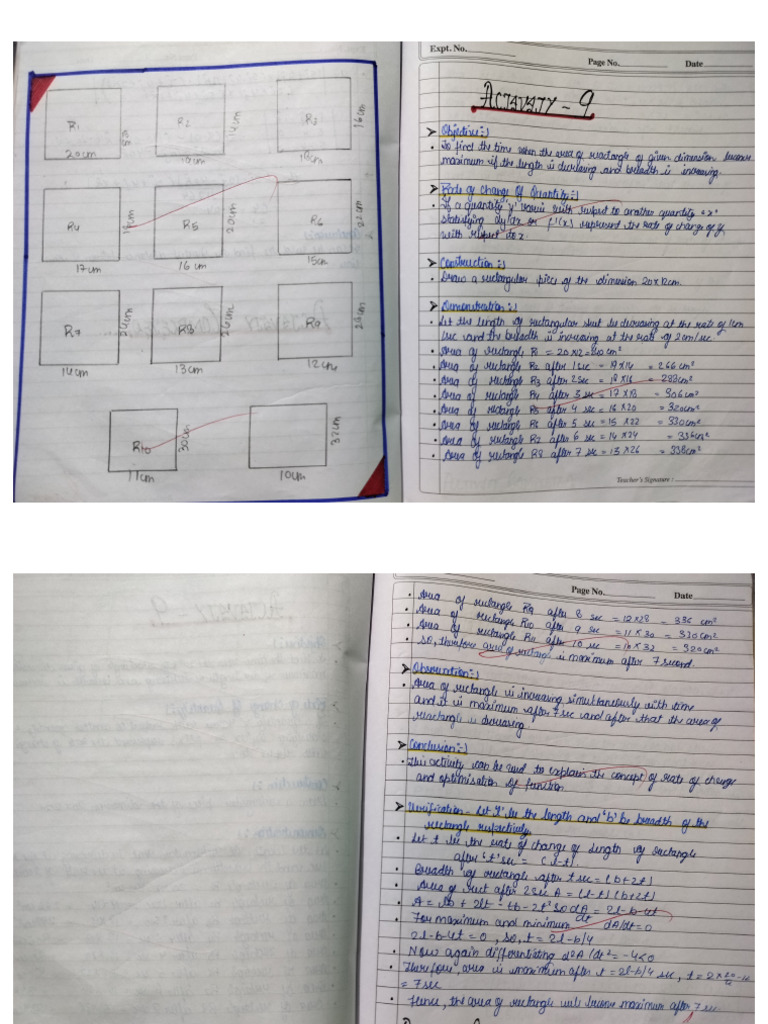 R1
20cm
R2
14cm
R3
16cm
R4
18cm
17cm
R5
20cm
16cm
R6
22cm
15cm
R7
24cm
14cm
R8
26cm
13cm
R9
28cm
12cm
R10
30cm
11cm
32cm
10cm
Expt. No.
Page No. Date
ACTIVITY - 9
Objective:-)
• To find the time when the area of reactangle of given dimension become
maximum if the length is decreasing and breadth is increasing.
Rate of Change Of Quantity:-)
• If a quantity 'y' varies with respect to another quantity "x"
statisfying dy/dx or f'(x) represent the rate of change of y
with respect to x.
Construction:-)
• Draw a rectangular piece of the dimension 20x12cm.
Demonstration:-)
• Let the length of rectangular sheet be decreasing at the rate of 1cm
/sec and the breadth is increasing at the rate of 2cm/sec.
• Area of rectangle R1 = 20x12=240cm²
• Area of rectangle R2 after 1 sec = 19x14 = 266 cm²
• Area of rectangle R3 after 2sec = 18x16 = 288cm²
• Area of rectangle R4 after 3 sec = 17x18 = 306cm²
• Area of rectangle R5 after 4 sec = 16x20 = 320cm²
• Area of rectangle R6 after 5 sec = 15x22 = 330cm²
• Area of rectangle R7 after 6 sec = 14x24 = 336cm²
• Area of rectangle R8 after 7 sec = 13x26 = 338cm²
Teacher's Signature :
Page No. Date
• Area of rectangle R9 after 8 sec = 12x28 = 336 cm²
• Area of rectangle R10 after 9 sec = 11x30 = 330cm²
• Area of rectangle R11 after 10 sec = 10x32 = 320cm²
• So, therefore area of rectangle is maximum after 7 second.
Observation:-)
• Area of rectangle is increasing simultaneously with time
and it is maximum after 7 sec and after that the area of
reactangle is decreasing.
Conclusion:-)
• This activity can be used to explain the concept of rate of change
and optimisation of function.
Verification - Let 'l' be the length and 'b' be breadth of the
rectangle respectively.
• Let t be the rate of change of length of rectangle
after 't' sec = (l-t).
• Breadth of rectangle after t sec = (b+2t)
• Area of rect after 2sec A = (l-t) (b+2t)
• A = lb + 2lt - tb - 2t² so dA/dt = 2l-b-4t
• For maximum and minimum dA/dt=0
2l-b-4t=0, so, t=2l-b/4
• Now again differentiating d²A/dt²=-4<0
• Therefore, area is maximum after t=2l-b/4 sec, t=
= 7sec
• Hence, the area of rectangle will become maximum after 7 sec.